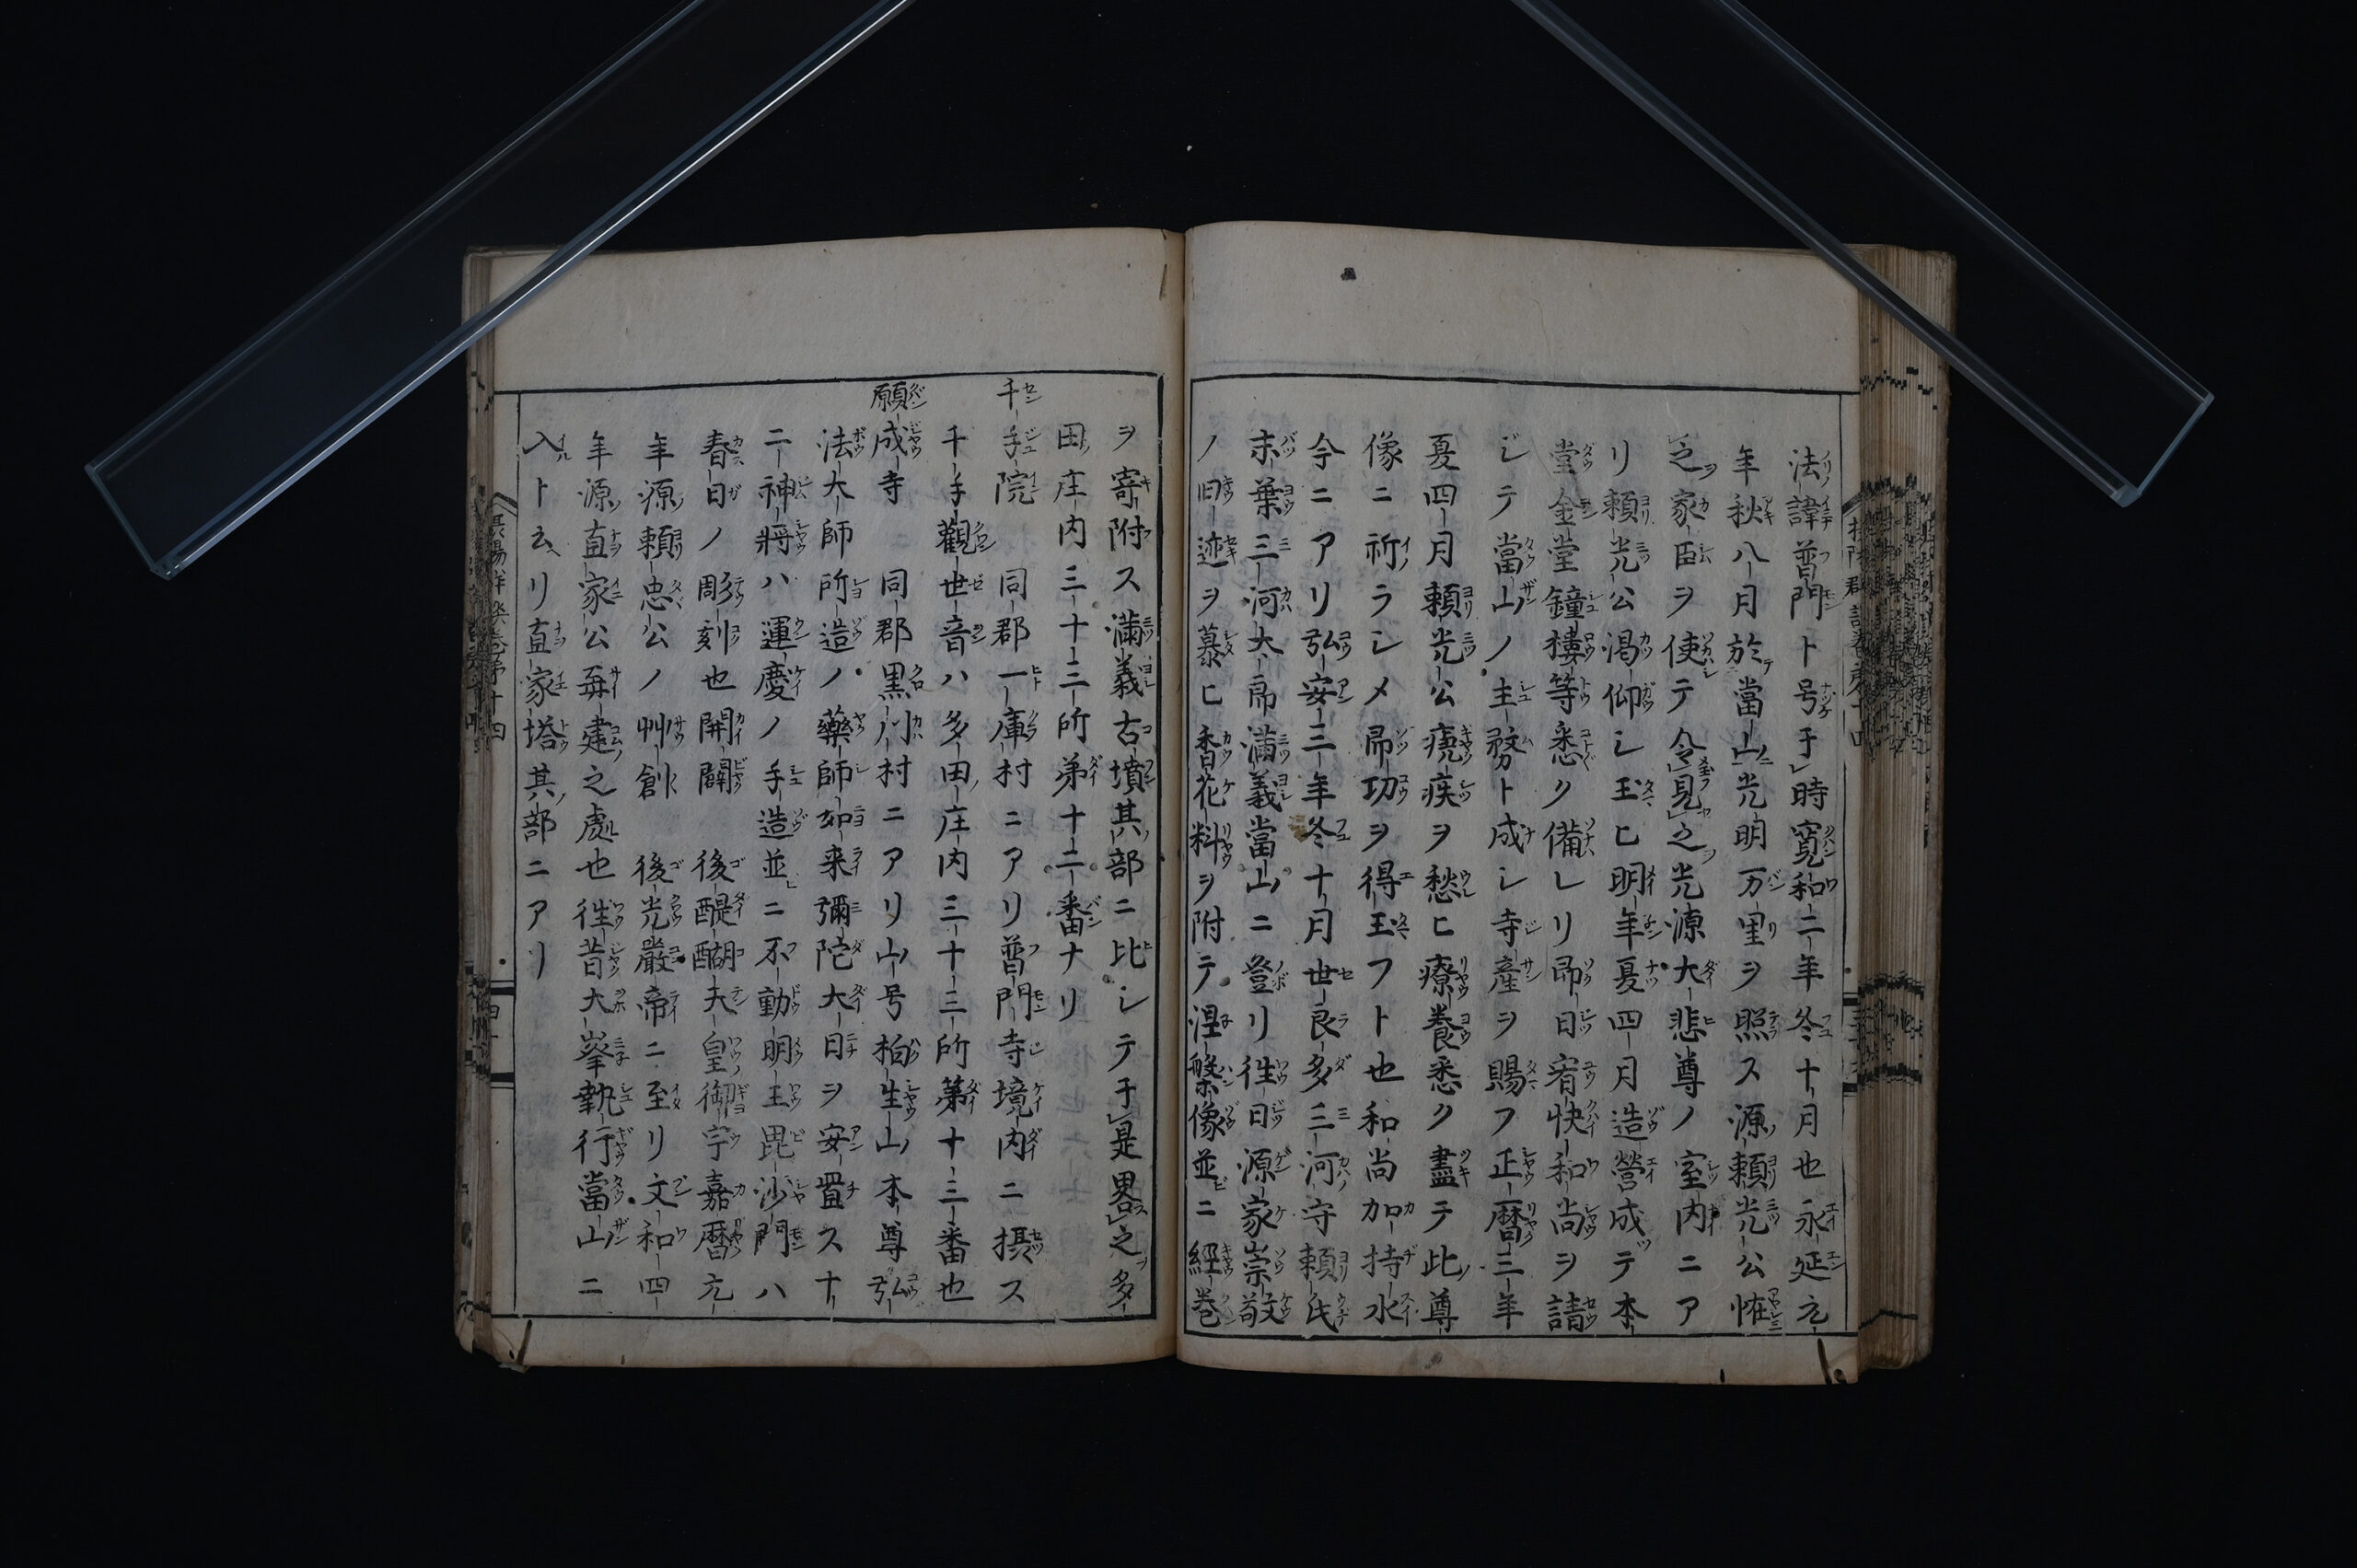 法諱普門ト号于時寛和二年冬十月也永延元
年秋八月於當山光明万里ヲ照ス源頼光公恠
之家臣ヲ使シテ令見之光源大悲尊ノ室内ニア
リ頼光公渇仰シ玉ヒ明年夏四月造營成テ本
堂金堂鐘樓等悉ク備レリ即日宥快和尚ヲ請
ジテ當山ノ主務ト成シ寺産ヲ賜フ正暦三年
夏四月頼光公瘧疾ヲ愁ヒ療養悉ク盡テ此尊
像ニ祈ラシメ即功ヲ得玉フト也和尚加持水
今ニアリ弘安三年冬十月世良多三河守頼氏
末葉三河大郎滿義當山ニ登リ徃日源家崇敬
ノ旧迹ヲ慕ヒ香花料ヲ附テ涅槃像並ニ經巻
ヲ寄附ス滿義古墳其部ニ比シテ于是畧之多
田庄内三十三所弟十二番ナリ
千手院 同郡一庫村ニアリ普門寺境内ニ摂ス
千手觀世音ハ多田庄内三十三所第十三番也
願成寺 同郡黒川村ニアリ山号柏生山本尊弘
法大師所造ノ藥師如来彌陀大日ヲ安置ス十
二神將ハ運慶ノ手造並ニ不動明王毘沙門ハ
春日ノ彫刻也開闢 後醍醐天皇御宇嘉暦元
年源頼忠公ノ艸創 後光嚴帝ニ至リ文和四
年源直家公再建之處也徃昔大峯執行當山ニ
入ト云リ直家塔其部ニアリ